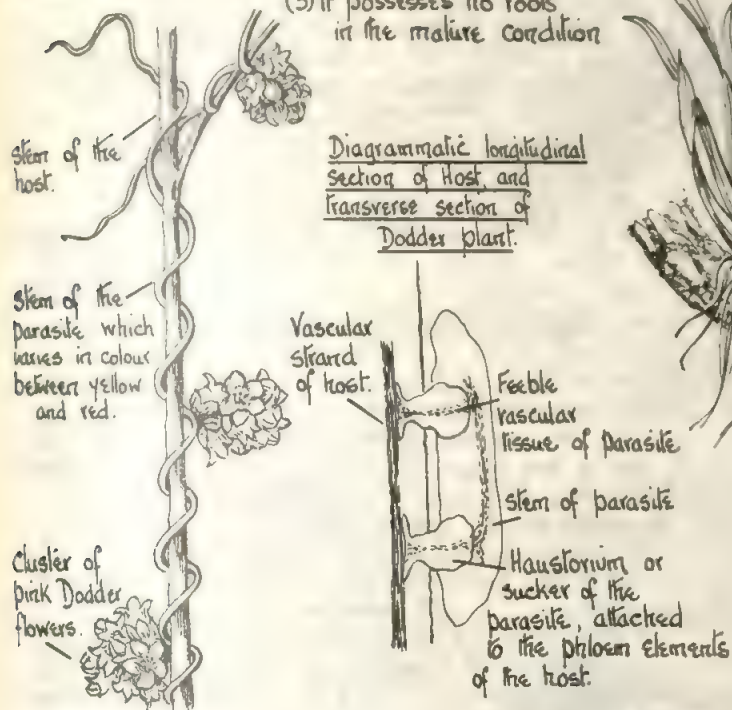 (3) it possesses no roots
in the mature condition
stem of the
host.
Diagrammatic longitudinal
section of Host, and
transverse section of
Dodder plant.
stem of the
parasite which
varies in colour
between yellow
and red.
Vascular
strand
of host.
Feeble
vascular
tissue of parasite
stem of parasite
Haustorium or
sucker of the
parasite, attached
to the phloem elements
of the host.
Cluster of
pink Dodder
flowers.